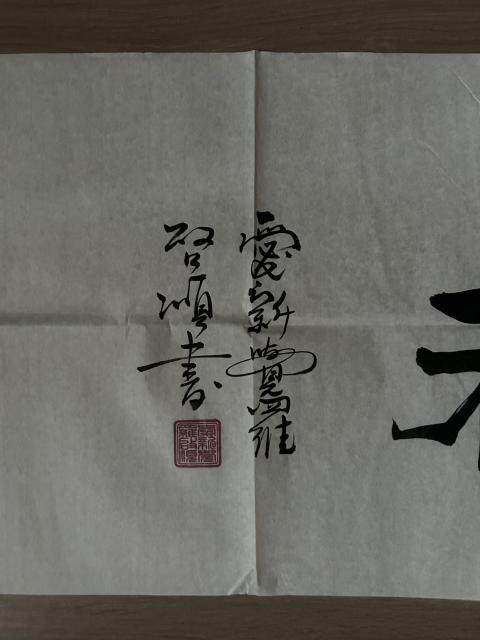 愛新覺羅
啓順書